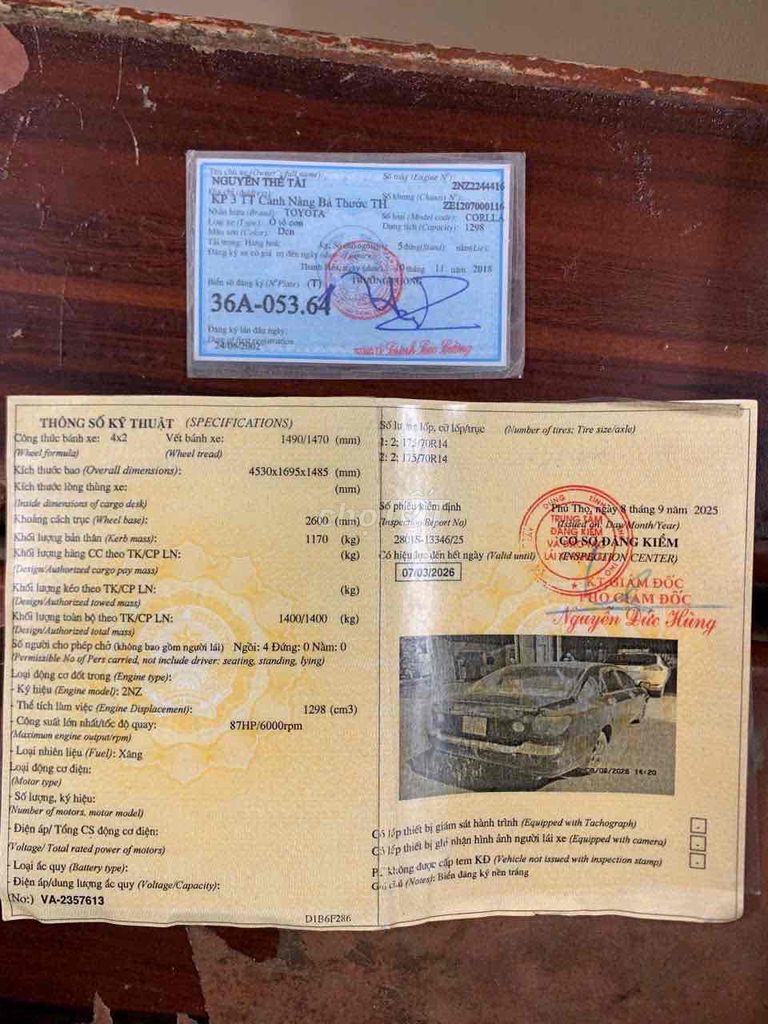 Tên chủ xe (Owner's full name):
NGUYỄN THẾ TÀI
KP 3 TT Cành Nàng Bá Thước TH
Nhãn hiệu (Brand): TOYOTA
Loại xe (Type): Ô tô con
Màu sơn (Color): Đen
Tải trọng: Hàng hoá: kg; Số chỗ ngồi 5 đứng (Stand) nằm (Lie):
Đăng ký xe có giá trị đến ngày
Thanh Hóa, ngày 10 tháng 11 năm 2018
Biển số đăng ký (N° Plate) (T)
36A-053.64
Đăng ký lần đầu ngày:
Date of first registration
24/06/2002
Số máy (Engine N°):
2NZ2244416
Số khung (Chassis N°):
ZE1207000116
Số loại (Model code): CORLLA
Dung tích (Capacity): 1298
THÔNG SỐ KỸ THUẬT (SPECIFICATIONS)
Công thức bánh xe: 4x2 Vết bánh xe: 1490/1470 (mm)
(Wheel formula) (Wheel tread)
Kích thước bao (Overall dimensions): 4530x1695x1485 (mm)
Kích thước lòng thùng xe: (mm)
(Inside dimensions of cargo desk)
Khoảng cách trục (Wheel base): 2600 (mm)
Khối lượng bản thân (Kerb mass): 1170 (kg)
Khối lượng hàng CC theo TK/CP LN: (kg)
(Design/Authorized cargo pay mass)
Khối lượng kéo theo TK/CP LN: (kg)
(Design/Authorized towed mass)
Khối lượng toàn bộ theo TK/CP LN: 1400/1400 (kg)
(Design/Authorized total mass)
Số người cho phép chở (không bao gồm người lái) Ngồi: 4 Đứng: 0 Nằm: 0
(Permissible No of Pers carried, not include driver: seating, standing, lying)
Loại động cơ đốt trong (Engine type):
- Ký hiệu (Engine model): 2NZ
- Thể tích làm việc (Engine Displacement): 1298 (cm3)
- Công suất lớn nhất/tốc độ quay: 87HP/6000rpm
(Maximum engine output/rpm)
- Loại nhiên liệu (Fuel): Xăng
Loại động cơ điện:
(Motor type)
- Số lượng, ký hiệu:
(Number of motors, motor model)
- Điện áp/ Tổng CS động cơ điện:
(Voltage/ Total rated power of motors)
- Loại ắc quy (Battery type):
- Điện áp/dung lượng ắc quy (Voltage/Capacity):
(No:) VA-2357613
D1B6F286
Số lượng lốp, cỡ lốp/trục (Number of tires: Tire size/axle)
1: 2; 175/70R14
2: 2; 175/70R14
Số phiếu kiểm định
(Inspection Report No)
2801S-13346/25
Có hiệu lực đến hết ngày (Valid until)
07/03/2026
Phú Thọ, ngày 8 tháng 9 năm 2025
(Issued on: Day/Month/Year)
CƠ SỞ ĐĂNG KIỂM
(INSPECTION CENTER)
TRUNG TÂM
ĐĂNG KIỂM
KT.GIÁM ĐỐC
PHÓ GIÁM ĐỐC
Nguyễn Đức Hùng
Có lắp thiết bị giám sát hành trình (Equipped with Tachograph)
Có lắp thiết bị ghi nhận hình ảnh người lái xe (Equipped with camera)
không được cấp tem KĐ (Vehicle not issued with inspection stamp)
Ghi chú (Notes): Biển đăng ký nền trắng